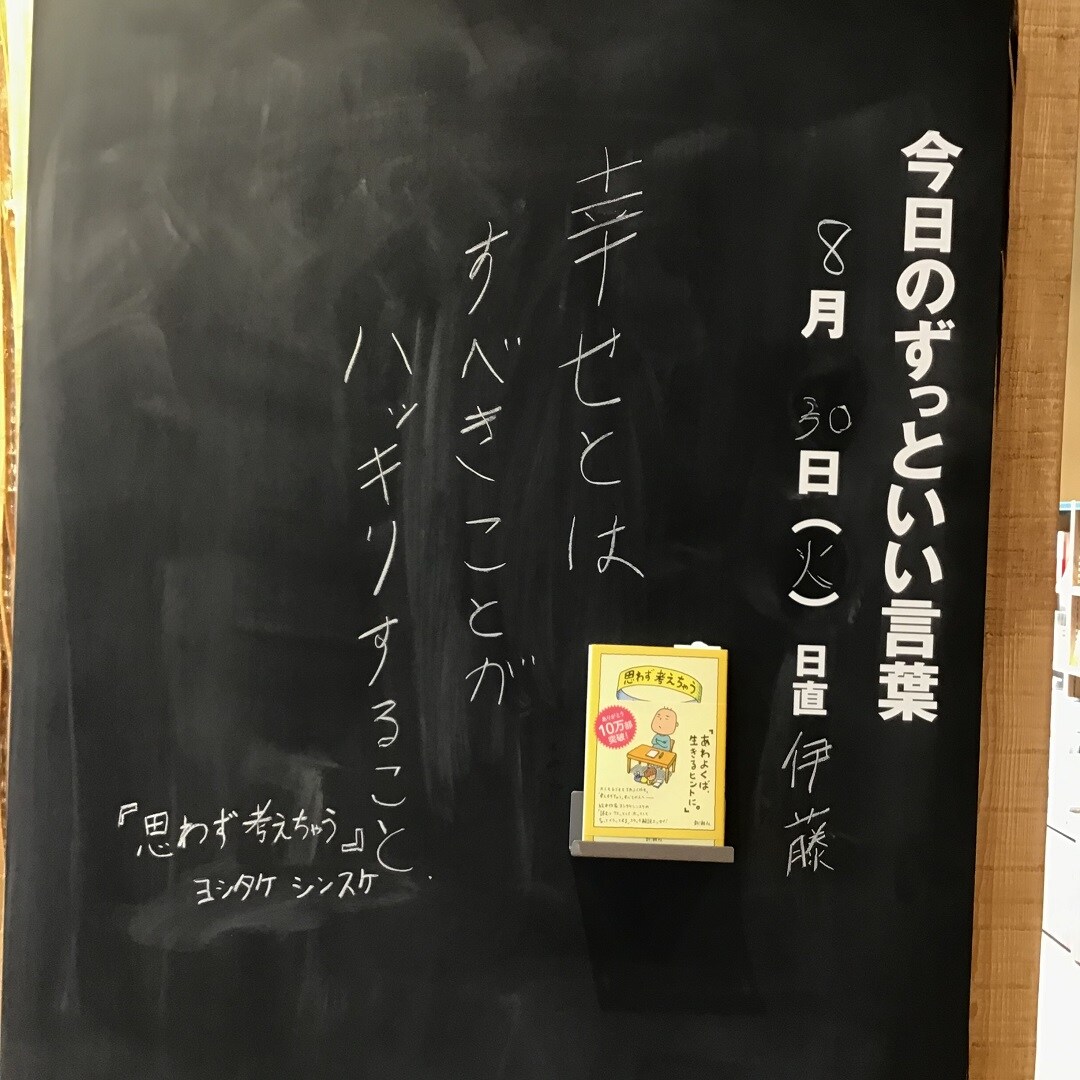 今日のずっといい言葉
8月30日(火) 日直 伊藤
幸せとは
すべきことが
ハッキリすること.
『思わず考えちゃう』
ヨシタケ シンスケ
思わず考えちゃう
ありがとう
10万部
突破!
「あわよくば、
生きるヒントに。」
新潮社